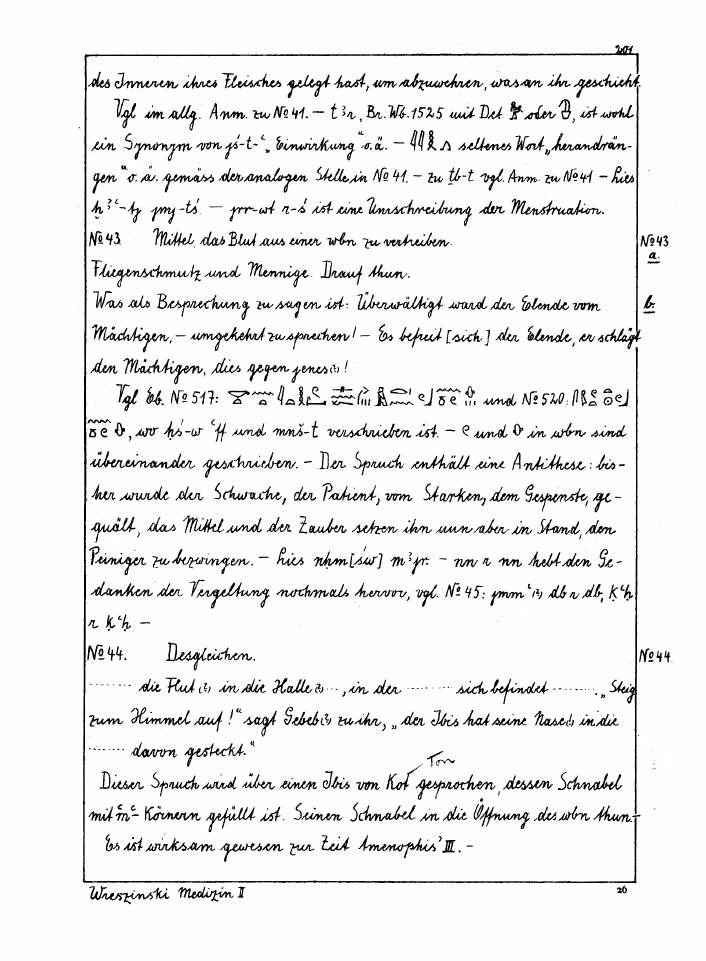 201
des Inneren ihres Fleisches gelegt hast, um abzuwehren, was an ihr geschieht.
Vgl im allg. Anm. zu № 41. – tꜣr, Br. Wb. 1525 mit Det oder , ist wohl
ein Synonym von jś-t-ꜥ „Einwirkung“ o.ä. – 𓇋𓇋 seltenes Wort „herandrän-
gen“ o. ä. gemäss der analogen Stelle in № 41. – zu ṯb-t vgl. Anm. zu № 41 – Lies
ḥꜣꜥ-tj jmj-tś. – jrr-wt r-ś ist eine Umschreibung der Menstruation.
№ 43. Mittel, das Blut aus einer wbn zu vertreiben. № 43
a.
Fliegenschmutz und Mennige. Drauf thun.
Was als Besprechung zu sagen ist: Überwältigt ward der Elende vom b.
Mächtigen, – umgekehrt zu sprechen! – Es befreit [sich] der Elende, er schlägt
den Mächtigen, dies gegen jenes(?)!
Vgl Eb. № 517: und № 520:
, wo ḥś-w ꜥff und mnš-t verschrieben ist. – und in wbn sind
übereinander geschrieben. – Der Spruch enthält eine Antithese: bis-
her wurde der Schwache, der Patient, vom Starken, dem Gespenste, ge-
quält, das Mittel und der Zauber setzen ihn nun aber in Stand, den
Peiniger zu bezwingen. – Lies nḥm[św] mꜣjr. – nn r nn hebt den Ge-
danken der Vergeltung nochmals hervor, vgl. № 45: jmmꜥ(?) db r db, ḳꜥḥ
r ḳꜥḥ –
№ 44. Desgleichen. № 44
........ die Flut(?) in die Halle(?)..., in der ........ sich befindet ........, „Steig
zum Himmel auf!“ sagt Gebeb(?) zu ihr, „der Ibis hat seine Nase(?) in die
....... davon gesteckt.“
Ton
Dieser Spruch wird über einen Ibis von Kot gesprochen, dessen Schnabel
mit ꜥmꜥ-Körnern gefüllt ist. Seinen Schnabel in die Öffnung des wbn thun. –
Es ist wirksam gewesen zur Zeit Amenophis' III. –
Wreszinski Medizin II 26